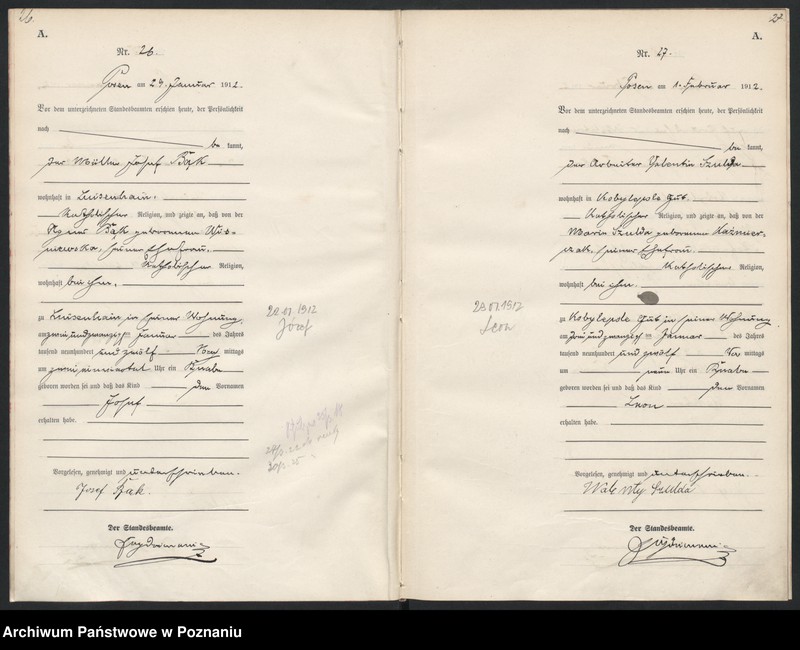 26.
A.
Nr. 26.
Posen am 24. Januar 1912.
Vor dem unterzeichneten Standesbeamten erschien heute, der Persönlichkeit
nach
be kannt,
der Müller Josef Bąk
wohnhaft in Luisenhain,
katholischer Religion, und zeigte an, daß von der
Agnes Bąk geborenen
seiner Ehefrau,
katholischer Religion,
wohnhaft bei ihm,
zu Luisenhain in seiner Wohnung,
am zwei und zwanzigsten Januar des Jahres
tausend neunhundert und zwölf Vor mittags
um zwei einviertel Uhr ein Knabe
geboren worden sei und daß das Kind den Vornamen
Josef
erhalten habe.
22.01.1912
Józef
Vorgelesen, genehmigt und unterschrieben.
Josef Bąk.
Der Standesbeamte.
27
A.
Nr. 27.
Posen am 1. Februar 1912.
Vor dem unterzeichneten Standesbeamten erschien heute, der Persönlichkeit
nach
be kannt,
der Arbeiter Valentin Szulda
wohnhaft in Kobylepole Gut,
katholischer Religion, und zeigte an, daß von der
Maria Szulda geborenen Kazmier-
czak, seiner Ehefrau,
katholischer Religion,
wohnhaft bei ihm,
zu Kobylepole Gut in seiner Wohnung
am drei und zwanzigsten Januar des Jahres
tausend neunhundert und zwölf Vor mittags
um neun Uhr ein Knabe
geboren worden sei und daß das Kind den Vornamen
Leon
erhalten habe.
23.01.1912
Leon
Vorgelesen, genehmigt und unterschrieben.
Walenty Szulda
Der Standesbeamte.
Archiwum Państwowe w Poznaniu